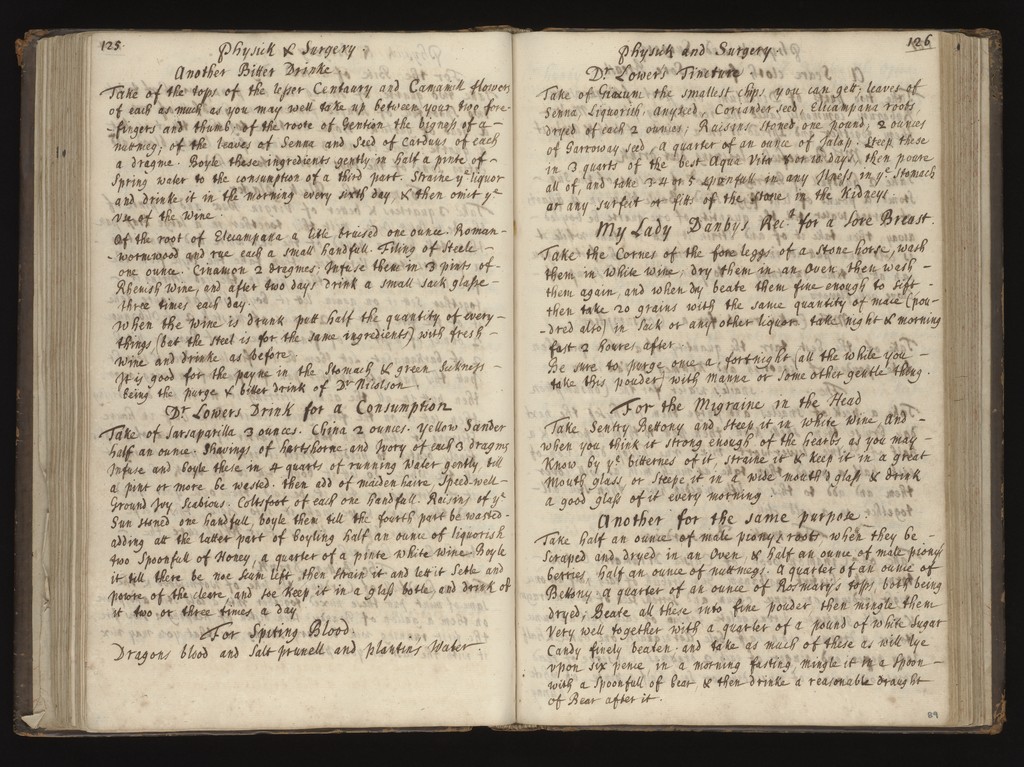 125
Physick & Surgery
Another Bitter Drinke
Take of the tops of the lesser Centaury and Camamill flowers
of each as much as you may well take up between your two fore-
-fingers and thumb; of the roote of Gention the bigness of a
nuttmeg; of the leaves of Senna and Seed of Carduus of each
a dragme. Boyle these ingredients gently in half a pinte of
Spring water to the consumption of a third part. Straine ye liquor
and drinke it in the morning every sixth day & then omit ye
use of the wine.
Of the root of Elecampana a litle bruised one ounce. Roman-
-wormwood and rue each a small handfull. Filing of Steele
one ounce. Cinamon 2 dragmes; Infuse them in 3 pints of
Rhenish wine, and after two days drink a small sack glasse
three times each day.
When the wine is drunk putt half the quantity of every
things (but the steel is for the same ingredients) with fresh
wine and drinke as before.
It is good for the payne in the Stomach & green sickness
being the purge & bitter drink of Dr Nicolson
Dr Lowers Drink for a Consumption
Take of Sarsaparilla 3 ounces. China 2 ounces. yellow Sander
half an ounce. Shavings of hartshorne and Ivory of each 3 dragms
Infuse and boyle these in 4 quarts of running water gently till
a pint or more be wasted. then add of maiden haire Speed-well
Ground Ivy Scabious. Coltsfoot of each one handfull. Raisins of ye
Sun stoned one handfull, boyle them till the fourth part be wasted
adding att the latter part of boyling half an ounce of liquorish
two Spoonfull of Honey, a quarter of a pinte white wine Boyle
it till there be noe scum left then strain it and lett it settle and
powre of the cleere, and soe keep it in a glass botle, and drink of
it two or three times a day
For Spiting Blood.
Dragons blood and salt prunell and plantins water.
126
Physick and Surgery
Dr Lowers Tincture
Take of Guacum the smallest chips you can gett; leaves of
Senna, Liquorish, anyseed, Coriander seed, Elicampana roots
dryed of each 2 ounces; Raisans stoned one pound, 2 ounces
of Carroway seed, a quarter of an ounce of Jalap. Steep these
in 3 quarts of the best Aqua Vitæ for 10 days, then poure
all of, and take 3 4 or 5 spunfull in any illness in ye Stomach
or any surfeit or fitts of the Stone in the Kidney
My Lady Danbys Rect for a Sore Breast.
Take the Cornes of the fore leggs of a stone horse, wash
them in white wine, dry them in an Oven, then wash
them again, and when dry beate them fine enough to sift
then take 20 grains with the same quantity of mace (pou-
-dred also) in Sack or any other liquor take night & morning
fast 2 houres after.
Be sure to purge once a fortnight (all the while you
take this pouder) with manna or some other gentle thing.
For the Migraine in the Head
Take Sentry Bettony and steep it in white wine, and
when you think it strong enough of the hearbs as you may
know by ye bitternes of it, straine it & keep it in a great
mouth glass, or steepe it in a wide mouth'd glass & drink
a good glass of it every morning
Another for the same purpose.
Take half an ounce of male piony roots when they be
scraped and dryed in an Oven, & half an ounce of male piony
berries, half an ounce of nuttmegs. A quarter of an ounce of
Bettony. a quarter of an ounce of Rosmarys tops, both being
dryed; Beate all these into fine pouder then mingle them
very well together with a quarter of a pound of white Sugar
Candy finely beaten. and take as much of these as will lye
upon six pence in a morning fasting, mingle it in a spoon
with a spoonfull of bear, & then drinke a reasonable draught
of Bear after it.
89